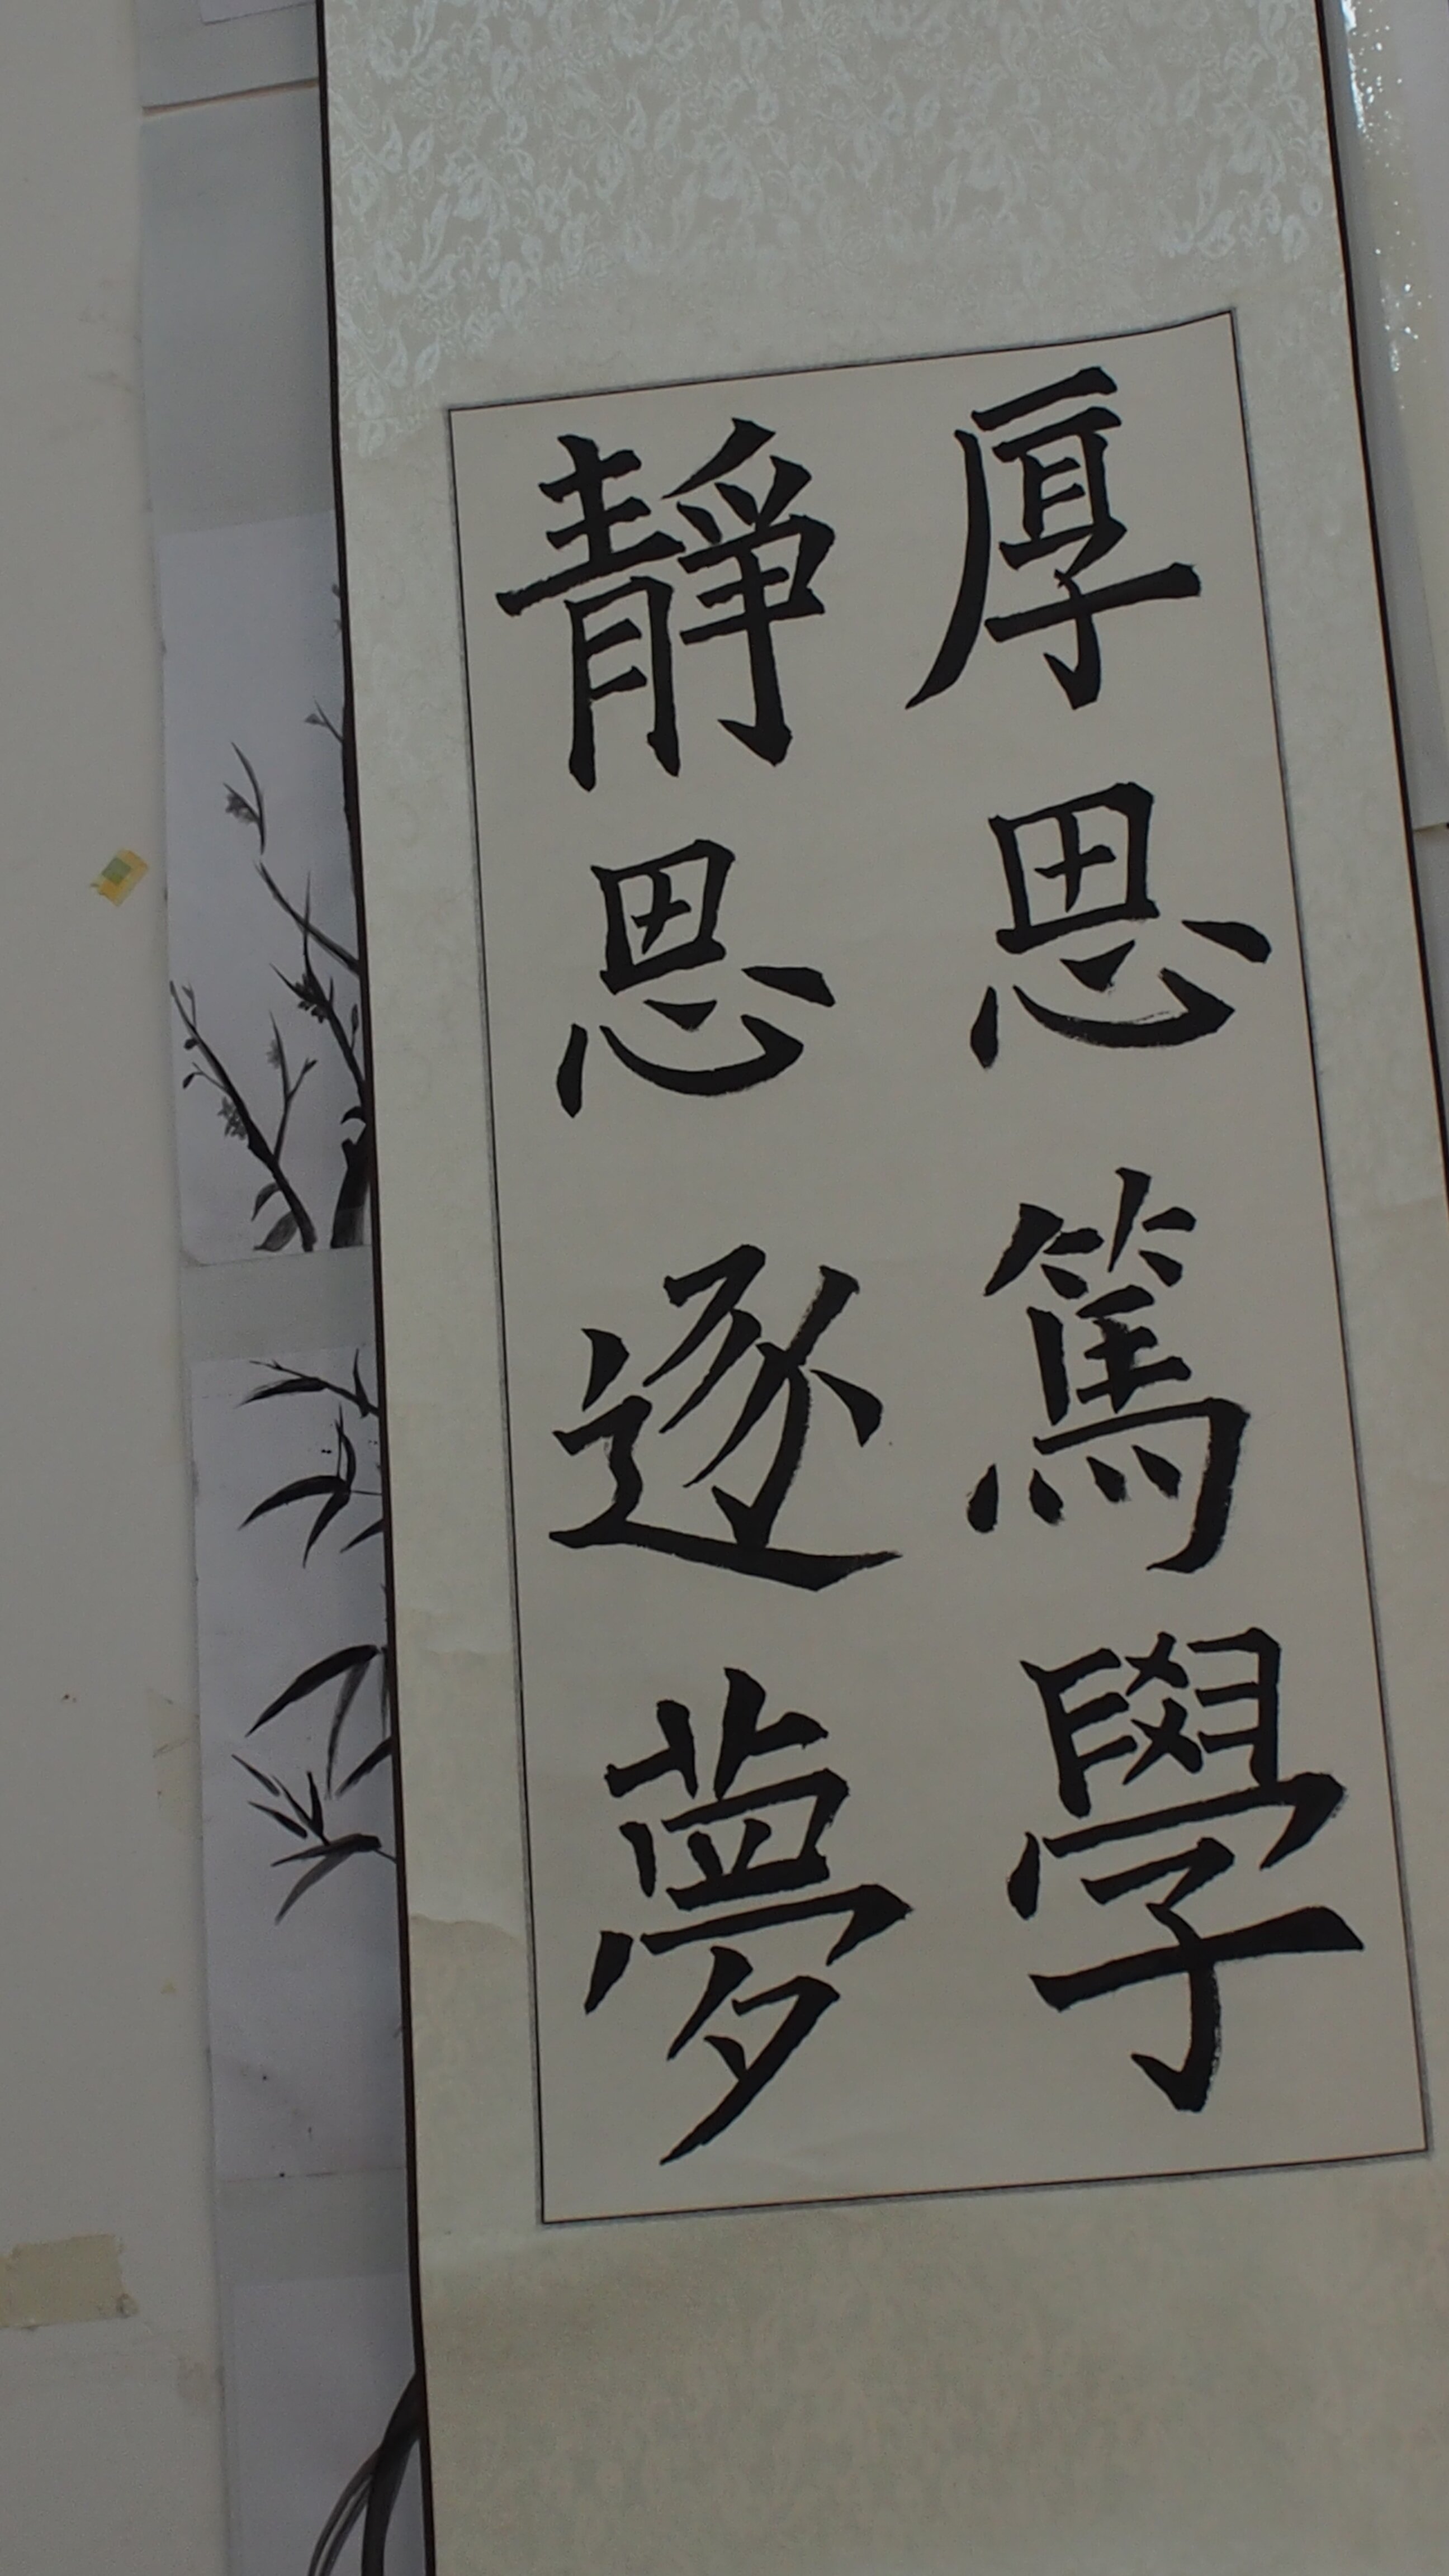 厚思篤學
靜思逐夢